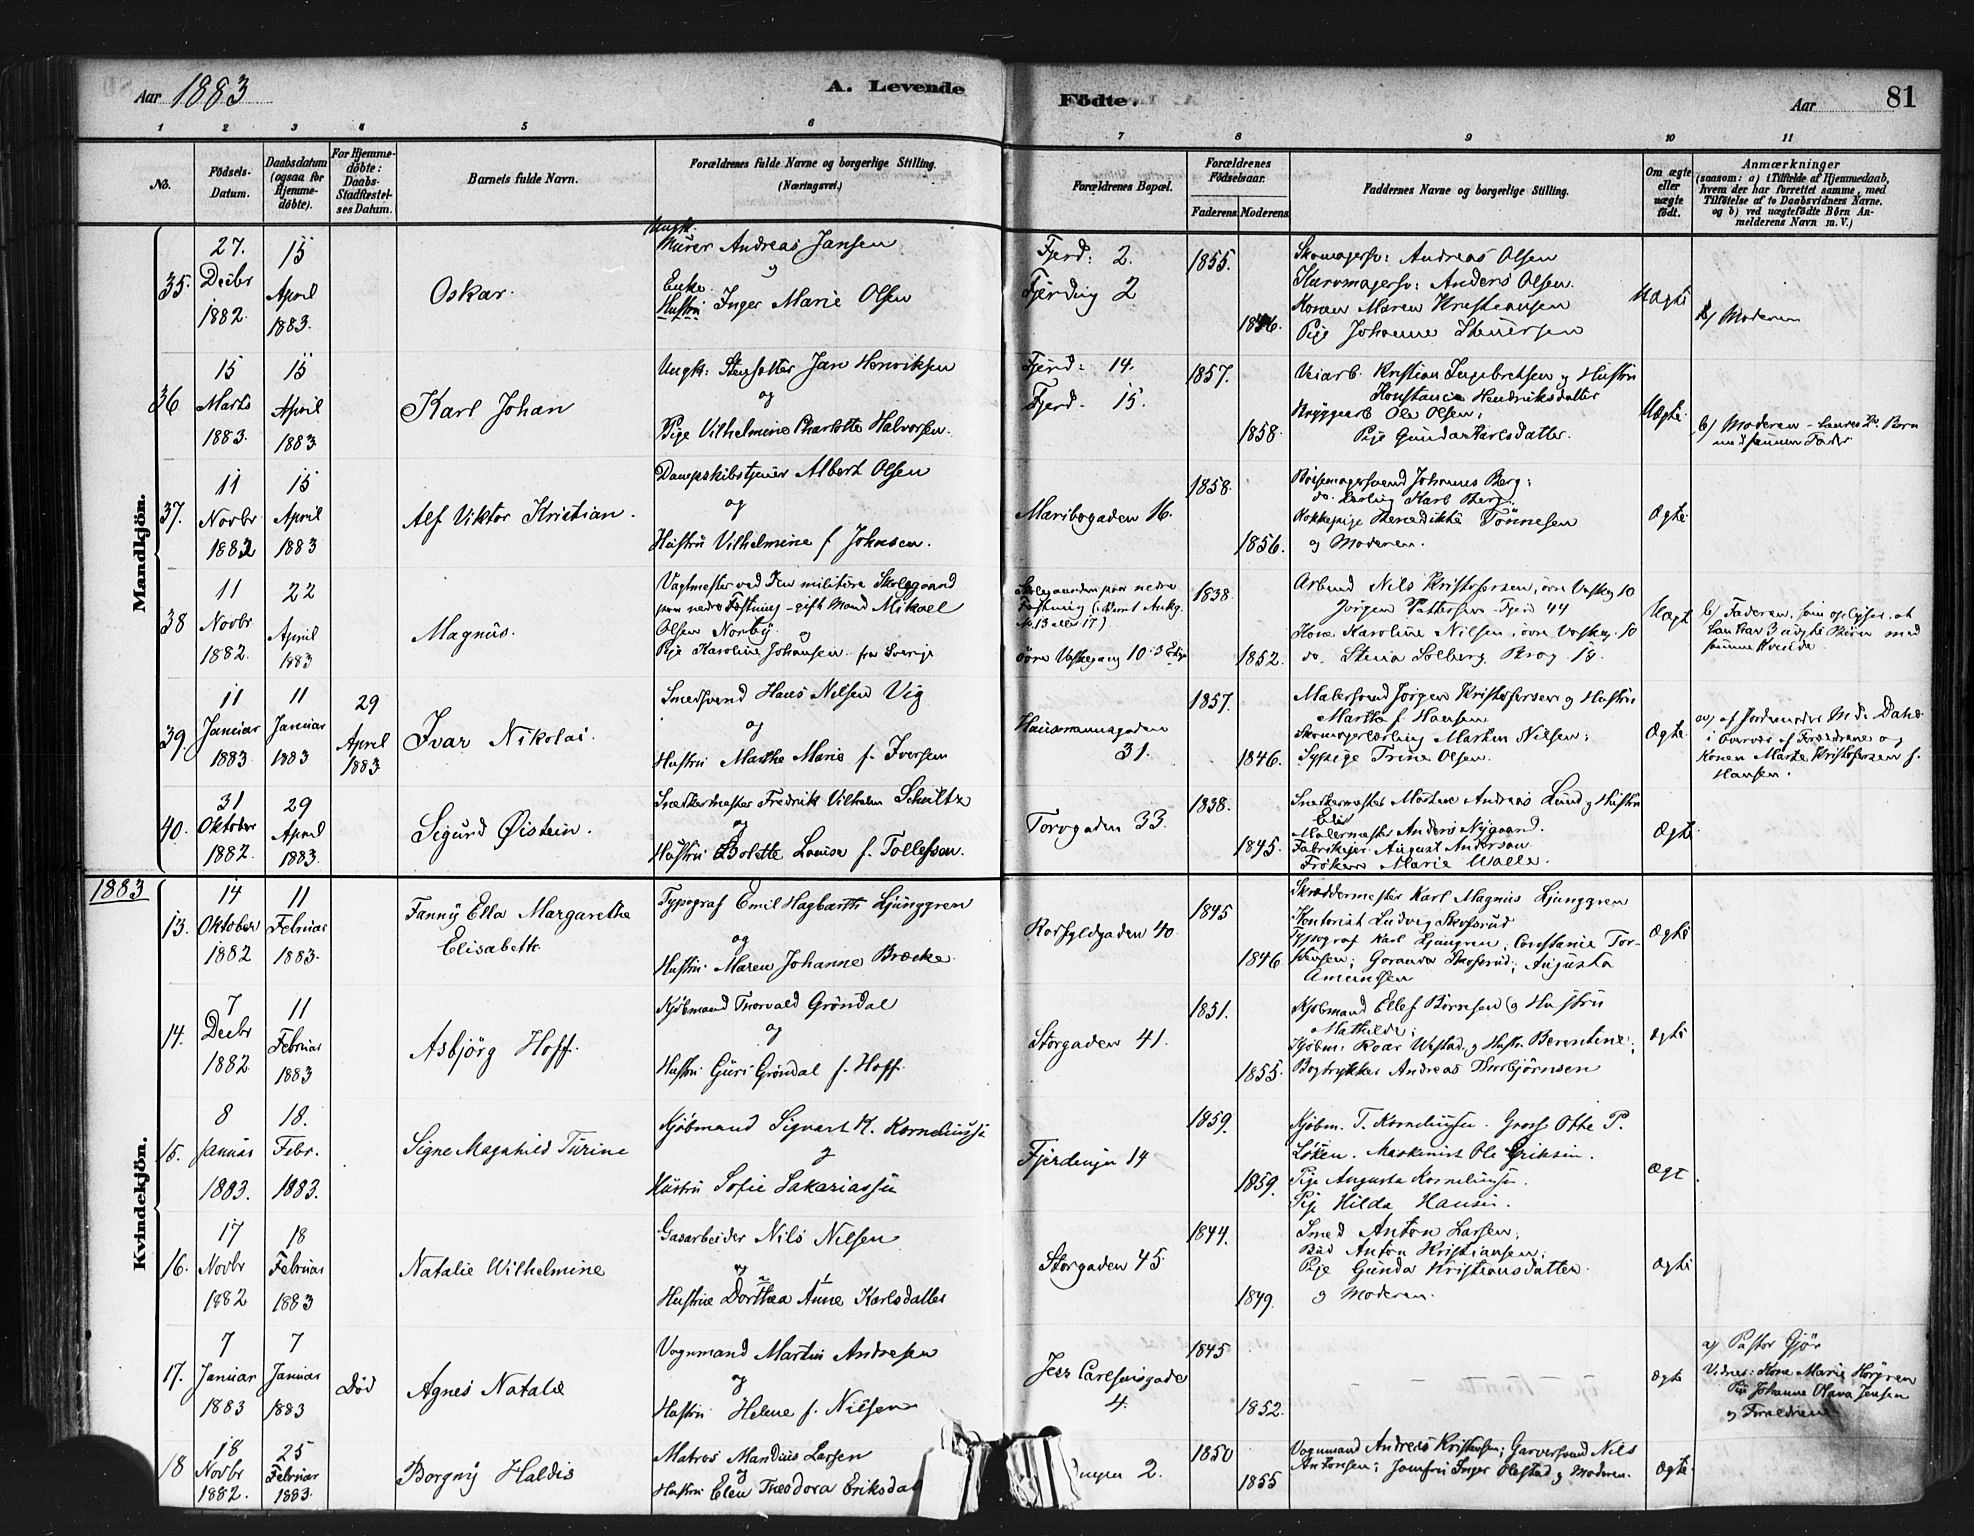 Aar 1883
A. Levende
Födte.
Aar
81
1 2 3 4 5 6 7 8 9 10 11
No.
Födsels-
Datum.
Daabsdatum
(ogsaa for
Hjemme-
döbte).
For Hjemme-
döbte:
Daabs-
Stadfæstel-
ses Datum.
Barnets fulde Navn.
Forældrenes fulde Navne og borgerlige Stilling.
(Næringsvei.)
Forældrenes Bopæl.
Forældrenes
Födselsaar.
Faderens. Moderens.
Faddernes Navne og borgerlige Stilling.
Om ægte
eller
uægte
födt.
Anmærkninger
(saasom: a) i Tilfælde af Hjemmedaab,
hvem der har forrettet samme, med
Tilföielse af to Daabsvidners Navne.
og b) ved uægtefödte Börn An-
melderens Navn m. V.)
Mandkjön.
35. 27. Decbr 1882. 15 April 1883.
Oskar.
Ungk.
Murer Andreas Jansen
og
Enke.
Hustru Inger Marie Olsen
Fjerd: 2.
Fjerding 2
1855.
Skomagersv: Andreas Olsen
Kurvmagersv: Anders Olsen
Konen Maren Kristiansen
Pige Johanne Stenersen
Uægte
b) Moderen
36 15 Marts 1883. 15 April 1883
Karl Johan
Ungk: Jan Henriksen
og
Pige Vilhelmine Charlotte Halvorsen.
Fjerd: 14.
Fjerd. 15.
1857.
1858.
Veiarb. Kristian Ingebretsen og Hustru
Konstance Hendriksdatter
Bryggearb Ole Olsen;
Pige Gunda Karlsdatter.
Uægte.
b) Moderen - hendes 2. Barn
med samme Fader
37. 11 Novbr 1882 15 April 1883
Alf Viktor Kristian.
Dampskibstjener Albert Olsen
og
Hustru Vilhelmine f. Johnsen.
Maribogaden 16.
1858.
1856.
Johannes Berg;
do. Lærling Karl Berg;
Kokkepige Benedikte Tönnesen
og Moderen.
Ægte
38 11 Novbr 1882. 22 April 1883
Magnus.
Vagtmester ved den militære Skolegaard
paa nedre Fæstning - gift Mand Mikael
Olsen Norby
og
Pige Karoline Johansen fra Sverige
Skolegaarden paa nedre
Fæstning
No. 13 eller 17)
övre Voskegang 10
1838.
1852.
Arbmd Nils Kristofersen, övre Voskeg 10
Jörgen Pettersen Fjerd 44
Kone Karoline Nilsen, övre Voskeg. 10
do. Stina Solberg. Brog. 18.
Uægt
b) Faderen, som oplyser, at
han har 3 uægte Börn med
samme Kvinde.
39. 11 Januar 1883. 11 Januar 1883 29 April 1883
Ivar Nikolai.
Smedsvend Hans Nilsen Vig
og
Hustru Marthe Marie f. Iversen
Hausmannsgaden
31.
1857.
1846.
Malersvend Jörgen Kristofersen og Hustru
Martha f. Hansen
Skomagerlærling Martin Nilsen;
Sypige Trine Olsen.
Ægte.
a) af Jordemoder M. Dahl
i Overvær af Forældrene og
Konen Marte Kristofersen f.
Hansen.
40. 31 Oktober 1882. 29 April 1883.
Sigurd Øistein.
Snedkermester Fredrik Vilhelm Schultz
og
Hustru Bolette Louise f. Tollefsen.
Torvgaden 33.
1838.
1845.
Snedkermester Andreas Lund og Hustru
Malermester Anders Nygaard.
Fabrikejer August Anderson
Fröken Marie Walle.
Ægte
1883
Kvindekjön.
13. 14 Oktober 1882 11 Februar 1883.
Fanny Ella Margarethe
Elisabeth
Typograf Emil Hagbarth Ljunggren
og
Hustru. Maren Johanne Bræcke.
Korsfyldgaden 40
1845
1846
Skræddermester Karl Magnus Ljunggren
Kontorist Ludvig Skofsrud
Typograf Karl Ljungren; Constanie Tor-
stensen; Goranda Skofsrud; Augusta
Amundsen
Ægte
14. 7 Decbr 1882 11 Februar 1883
Asbjörg Hoff.
Kjöbmand Thorvald Gröndal
og
Hustru Guri Gröndal f. Hoff.
Storgaden 41.
1851.
1855.
Kjöbmand Ellef Börresen og Hustru
Mathilde;
Kjöbm: Roar Westad og Hustr. Berentine;
Bogtrykker Andreas Thorbjörnsen
Ægte
15. 8 Januar 1883. 18. Febr. 1883.
Signe Magnhild Turine
Kjöbmand Sigvart H. Korneliussen
og
Hustru Sofie Sakariassen
Fjerdingen 14
1859.
1859.
Kjöbm. T. Korneliussen. Gross Otto P.
Löken. Maskinist Ole Eriksen.
Pige Augusta Korneliussen.
Pige Hilda Hansen.
Ægt
16. 17 Novbr 1882 18 Februar 1883
Natalie Wilhelmine
Gasarbeider Nils Nilsen
og
Hustrue Dorthea Anne Karlsdatter
Storgaden 45.
1844.
1849.
Smed Anton Larsen;
Bud Anton Kristiansen;
Pige Gunda Kristiansdatter
og Moderen.
Ægte
17. 7 Januar 1883 7 Januar 1883 Död
Agnes Natalie
Vognmand Martin Andresen
og
Hustru Helene f. Nilsen
Jess Carlsensgade
4.
1845
1852.
Ægte
a) Pastor Gjör
Vidner: Kone Marie Hörgren
Pige Johanne Olava Jensen
og Forældrene
18 18 Novbr 1882. 25 Februar 1883.
Borgny Haldis
Matros Mandius Larsen
og
Hustru Elen Theodora Eriksdat
ngen 2.
1850
1855
Vognmand Andreas Kristensen; Garversvend Nils
Antonsen; Jomfru Inger Olestad og Moderen.
Ægte